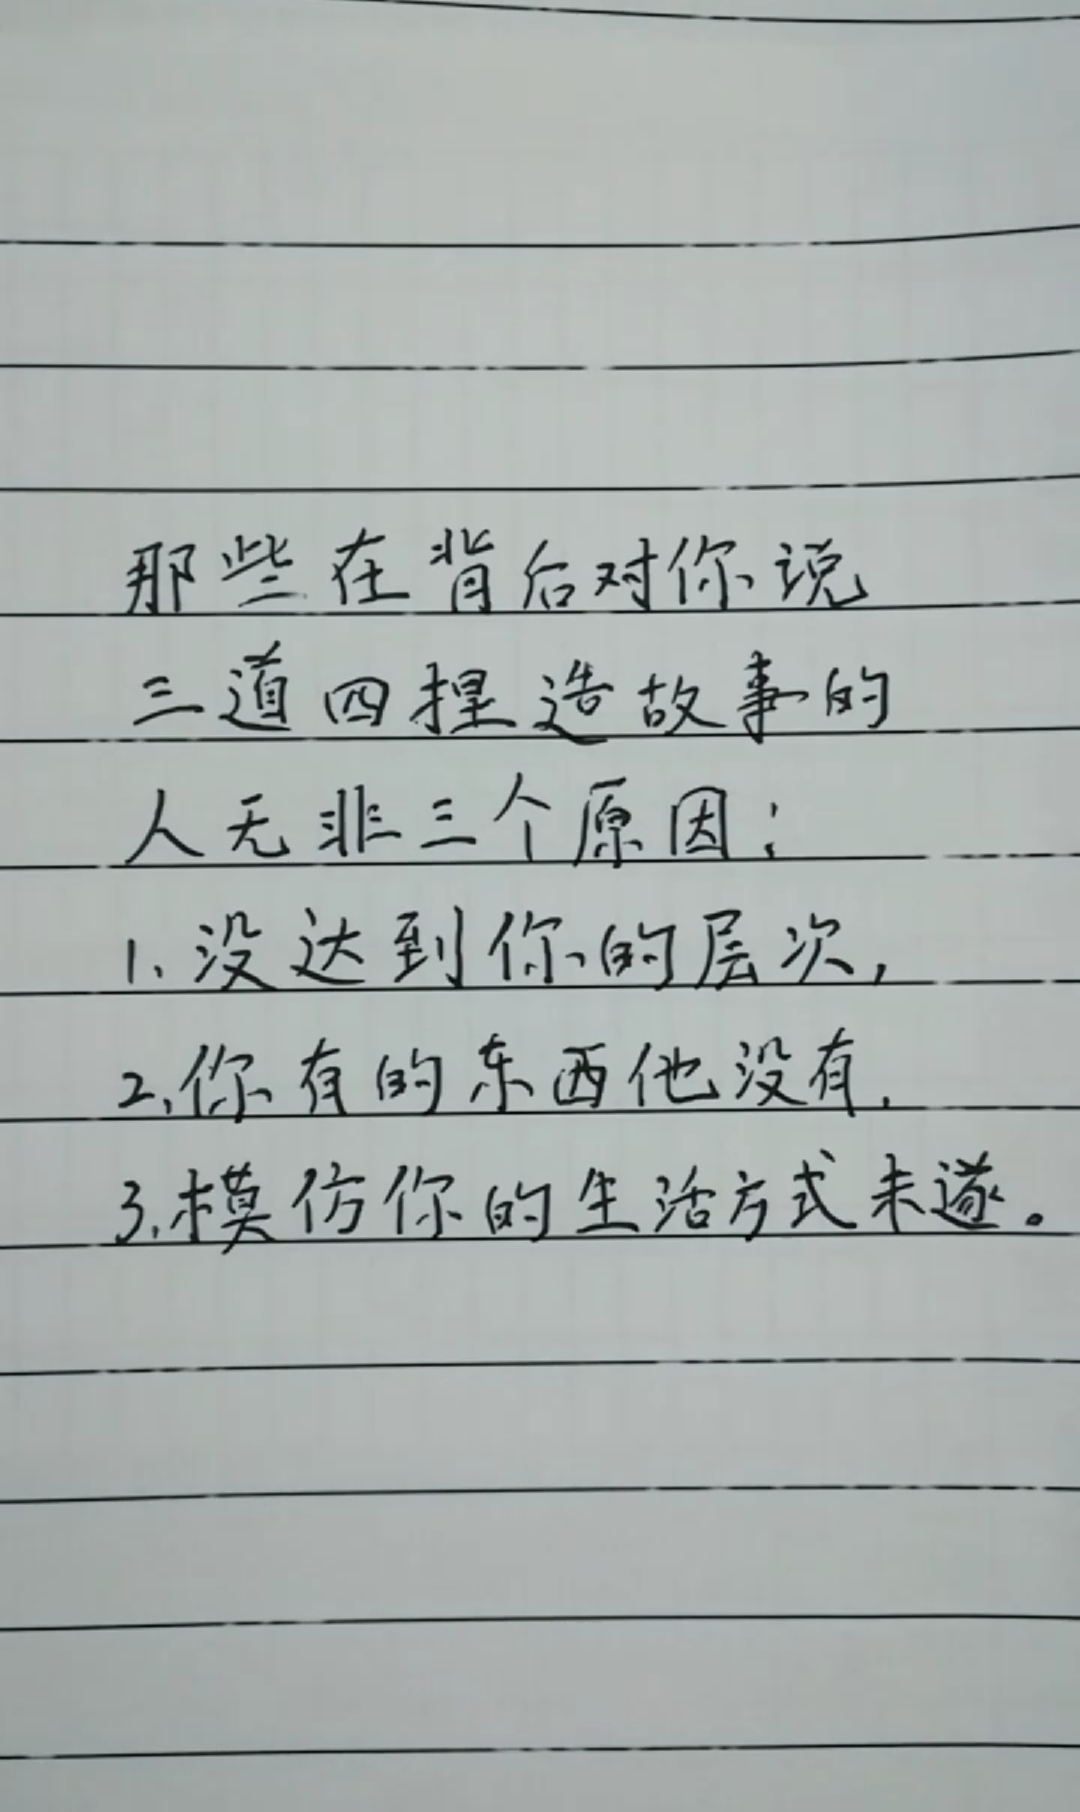 那些在背后对你说
三道四捏造故事的
人无非三个原因:
1、没达到你的层次,
2、你有的东西他没有,
3、模仿你的生活方式未遂。